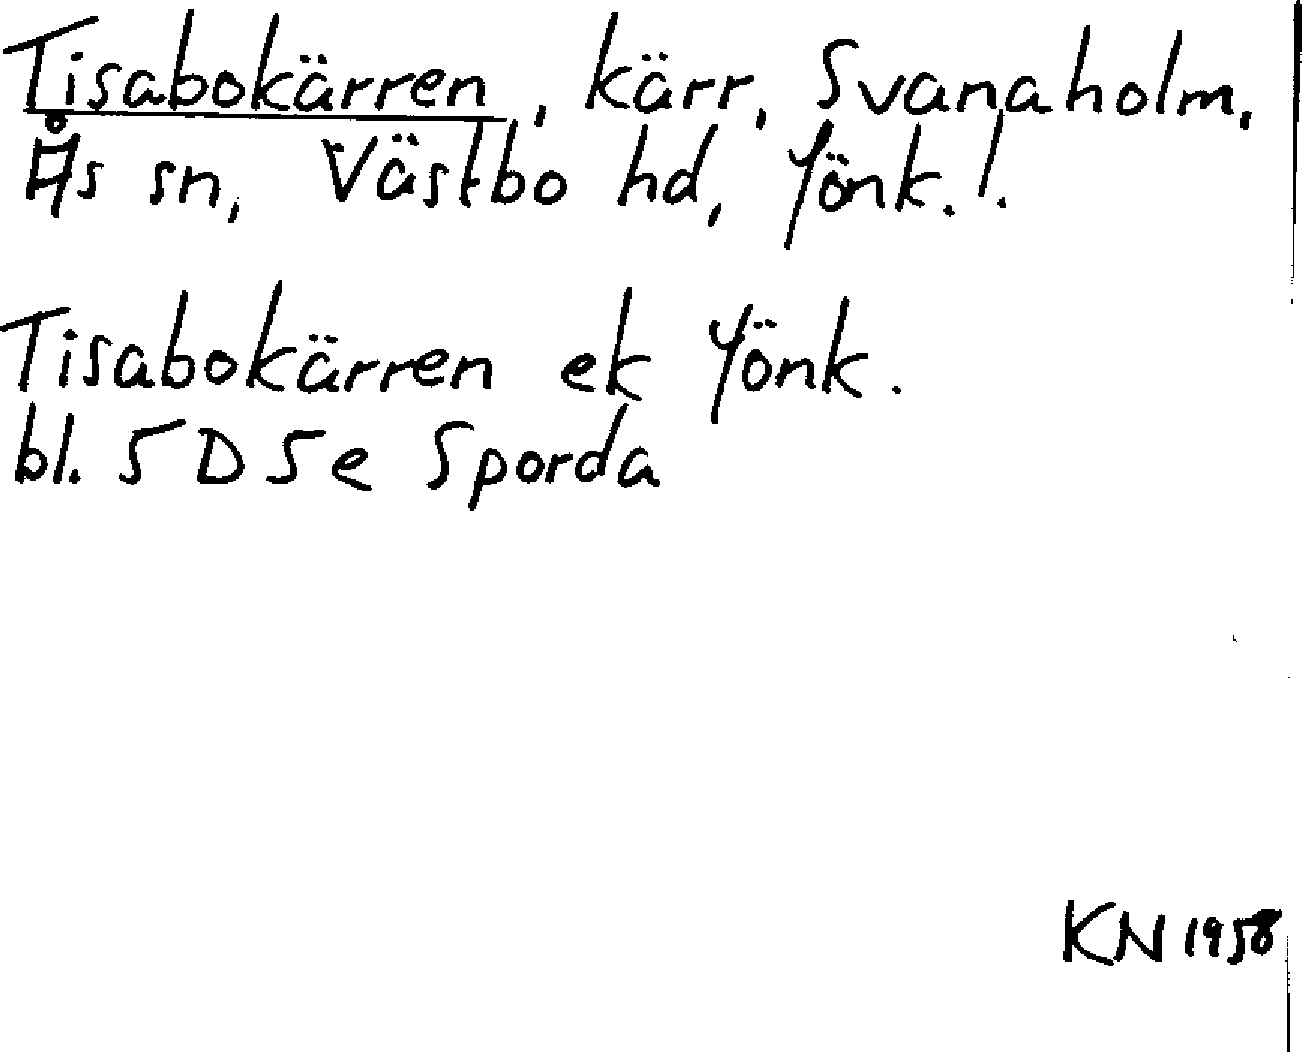 Tisabokärren, kärr, Svanaholm,
Ås sn, Västbo hd, Jönk.!.
Tisabokärren ek Jönk.
bl. 5D5e Sporda
KN 1958